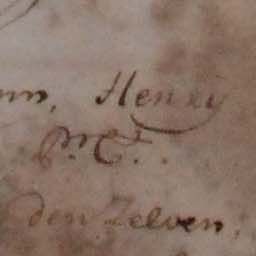 nn, Henry
den Zelven,